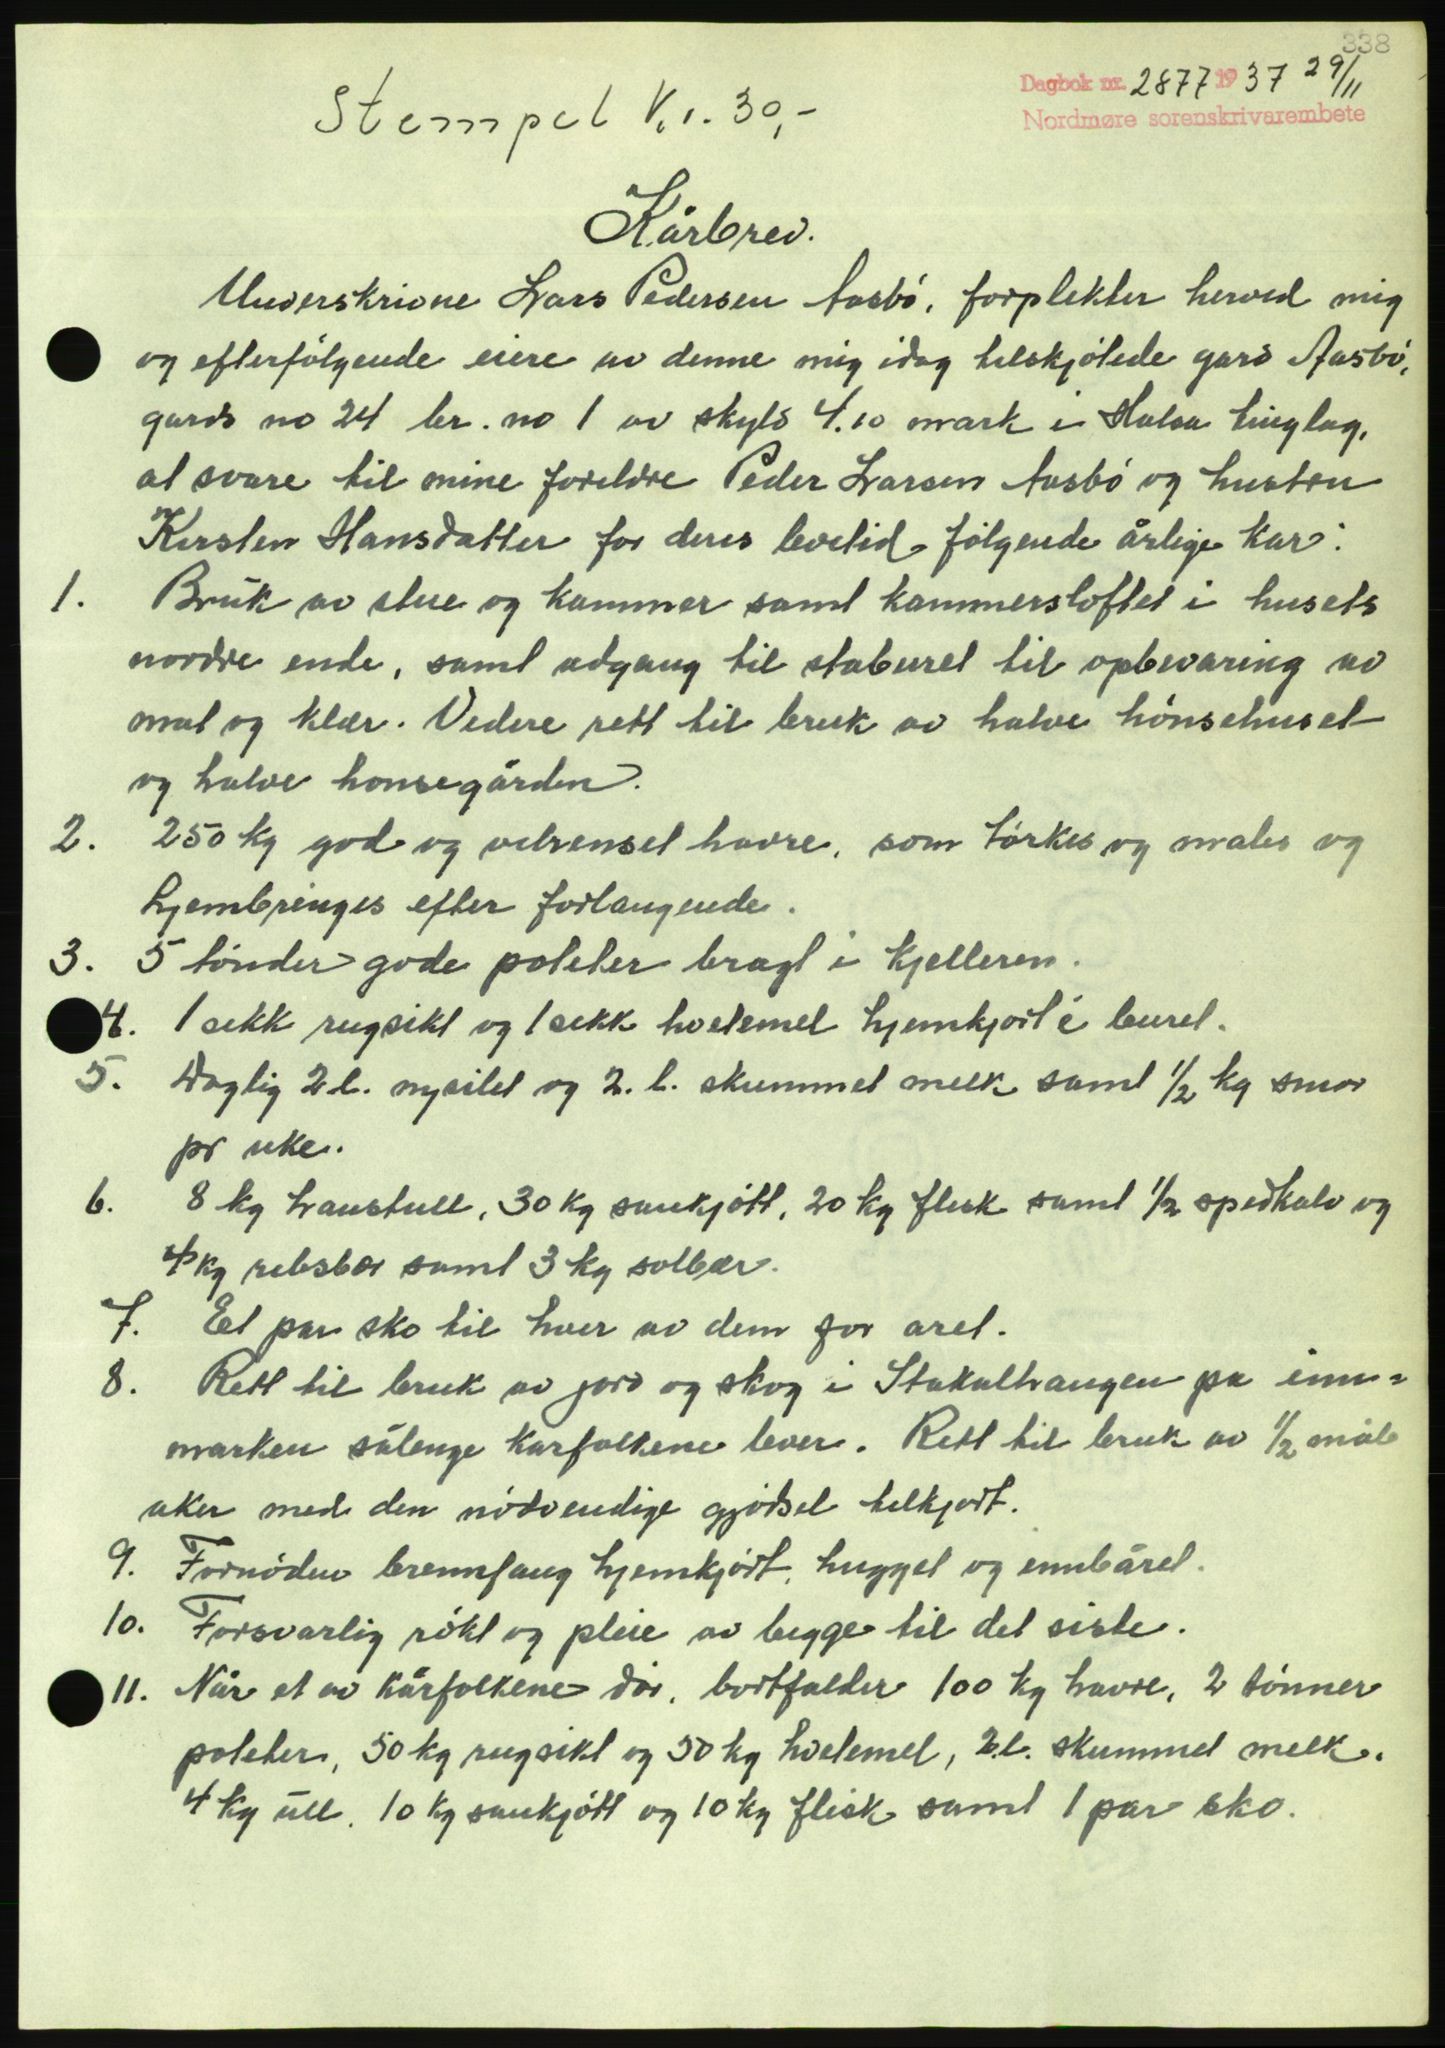 338
Dagbok nr. 2877 1937 29/11
Nordmøre sorenskrivarembete
Stempel Kr. 30,-
Kårbrev.
Underskrivne Lars Pedersen Aasbö, forplekter herved mig
og efterfölgende eiere av denne mig idag tilskjötede gard Aasbö,
gards no 24 br. no 1 av skyld 4.10 mark i Halsa tinglag,
at svare til mine foreldre Peder Larsen Aasbö og hustru
Kirsten Hansdatter for deres levetid fölgende årlige kar:
1. Bruk av stue og kammer samt kammersloftet i husets
nordre ende, samt adgang til staburet til opbevaring av
mat og klær. Videre rett til bruk av halve hönsehuset
og halve honsegården.
2. 250 kg god og velrenset havre, som törkes og males og
hjembringes efter forlangende.
3. 5 tönder gode poteter bragt i kjelleren.
4. 1 sekk rugsikt og 1 sekk hvetemel hjemkjört i buret.
5. Daglig 2 l. nysilet og 2. l. skummet melk samt 1/2 kg smor
pr uke.
6. 8 kg haustull, 30 kg saukjött, 20 kg flesk samt 1/2 spedkalv og
4 kg rebsbær samt 3 kg solbær.
7. Et par sko til hver av dem for aret.
8. Rett til bruk av jord og skog i pa inn=
marken sålenge karfolkene lever. Rett til bruk av 1/2 mål
aker med den nödvendige gjödsel tilkjört.
9. Fornöden brennfang hjemkjört, hugget og innbåret.
10. Forsvarlig rökt og pleie av begge til det siste.
11. Når et av kårfolkene dör, bortfalder 100 kg havre, 2 tönner
poteter, 50 kg rugsikt og 50 kg hvetemel, 2 l. skummet melk.
4 kg ull. 10 kg saukjött og 10 kg flesk samt 1 par sko.